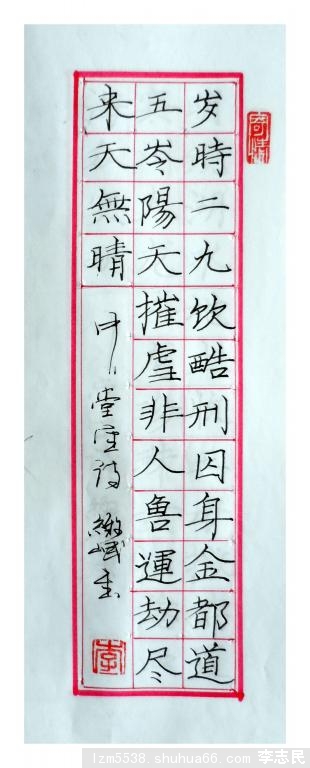 岁時二九饮酷刑囚身金都道
五岑陽天摧虐非人鲁運劫尽
来天無晴
李
lzm5538.shuhua66.com 李志民